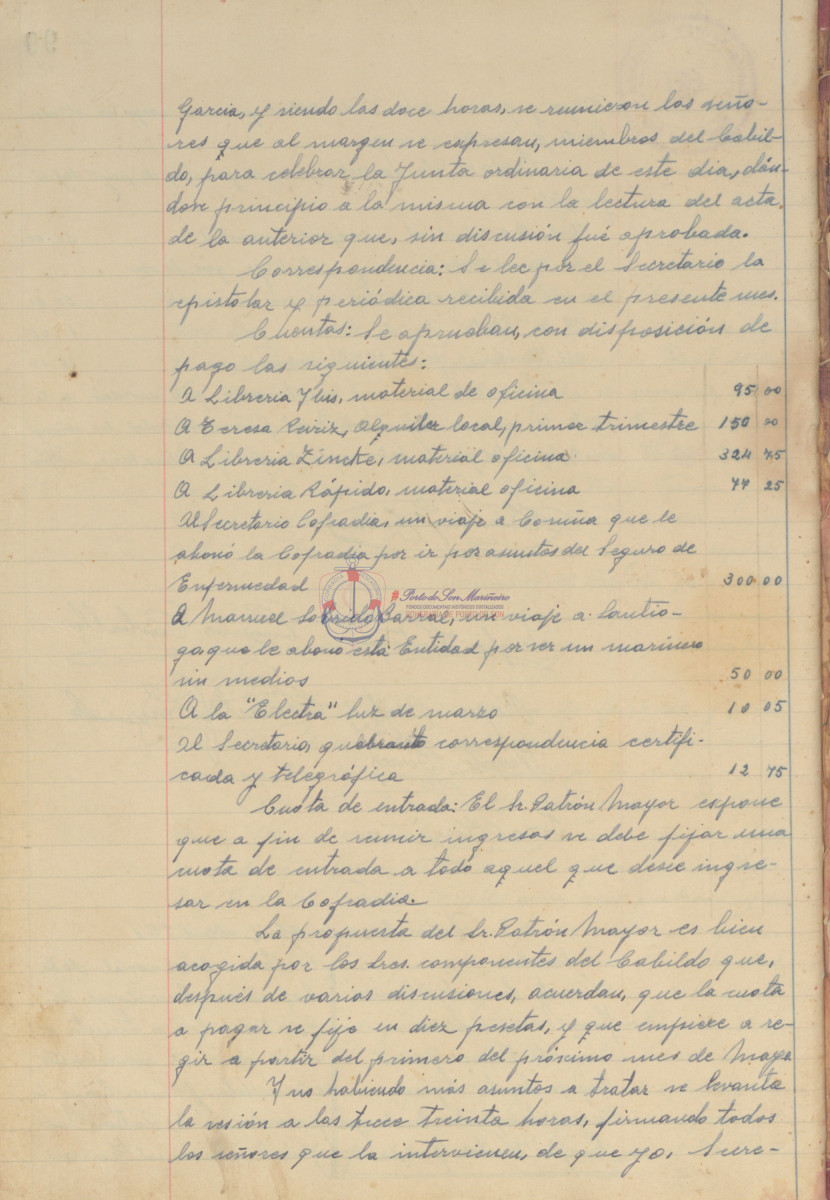 Garcia, y siendo las doce horas, se reunieron los seño-
res que al margen se expresan, miembros del Cabil-
do, para celebrar la Junta ordinaria de este dia, dán-
dose principio a la misma con la lectura del acta
de la anterior que, sin discusión fué aprobada.
Correspondencia: Se lee por el Secretario la
epistolar y periódica recibida en el presente mes.
Cuentas: Se aprueban, con disposición de
pago las siguientes:
A Libreria Ibis, material de oficina 95 00
A Teresa Reiriz, alquiler local, primer trimestre 150 00
A Libreria Zincke, material oficina 324 75
A Libreria Rápido, material oficina 77 25
Al Secretario Cofradia, un viaje a Coruña que le
abonó la Cofradia por ir por asuntos del Seguro de
Enfermedad 300 00
Porto do Son Mariñeiro
A Manuel Barral, un viaje a Santia-
go que le abonó esta Entidad por ver un marinero
sin medios 50 00
A la "Electra" luz de marzo 10 05
Al Secretario, quebranto correspondencia certifi-
cada y telegráfica 12 75
Cuota de entrada: El Sr. Patrón Mayor expone
que a fin de reunir ingresos se debe fijar una
cuota de entrada a todo aquel que desee ingre-
sar en la Cofradia.
La propuesta del Sr. Patrón Mayor es bien
acogida por los Sres. componentes del Cabildo que,
después de varias discusiones, acuerdan, que la cuota
a pagar se fije en diez pesetas, y que empiece a re-
gir a partir del primero del próximo mes de Mayo.
Y no habiendo más asuntos a tratar se levanta
la sesión a las trece treinta horas, firmando todos
los señores que la intervienen, de que yo, Secre-